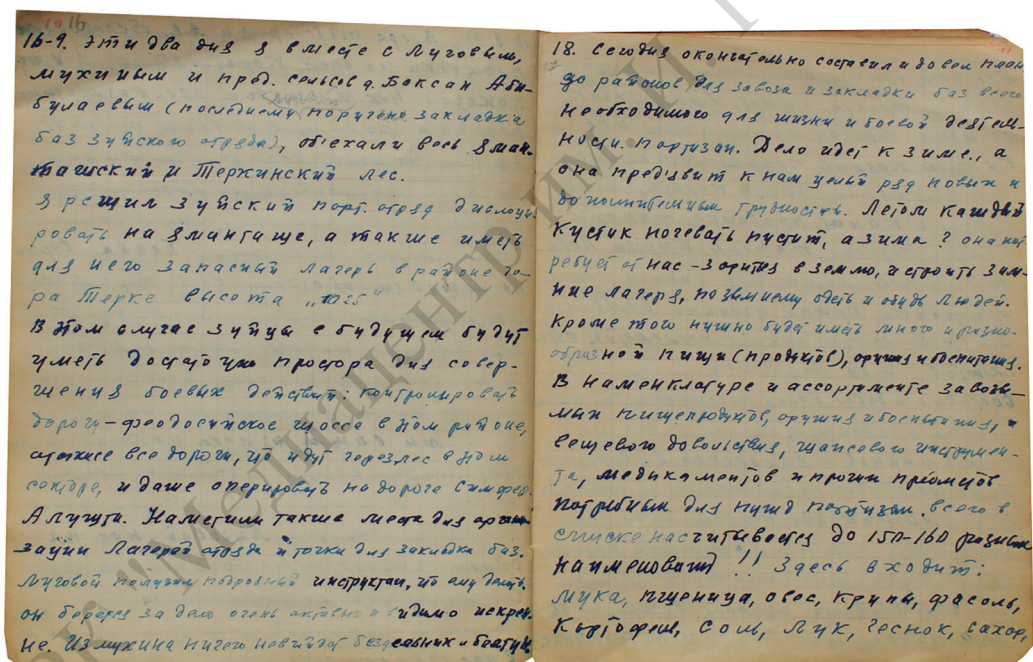 16
16-9. Эти два дня я вместе с Луговым,
Мухиным и пред. сельсов д. Боксан Аби-
булаевым (последнему поручена закладка
баз Зуйского отряда), объехали весь Яман-
ташский и Теркинский лес.
Я решил Зуйский парт. отряд дислоци-
ровать на Яманташе, а также иметь
для него запасный лагерь в районе го-
ра Терке высота „1025"
В этом случае зуйцы в будущем будут
уметь достаточно простора для совер-
шения боевых действий: контролировать
дорогу-феодосийское шоссе в этом районе,
а также все дороги, что идут через лес в этом
секторе, и даже оперировать на дороге Симфер.
Алушта. Наметили также места для органи-
зации лагерей отряда и точки для закладки баз.
Луговой получил подробный инструктаж, что ему делать.
он берется за дело очень активно и видимо искрен-
не. Из Мухина ничего не выйдет бездельник и болтун.
18. Сегодня окончательно составил и довел план
до районов для завоза и закладки баз всего
необходимого для жизни и боевой деятель-
ности партизан. Дело идет к зиме., а
она предъявит к нам целый ряд новых и
дополнительных трудностей. Летом каждый
кустик ночевать пустит, а зима? она пот
ребует от нас - зарыться в землю, и строить зим-
ние лагеря, по зимнему одеть и обуть людей.
Кроме того нужно будет иметь много и разно-
образной пищи (продуктов), оружия и боепитания.
В наменклатуре и ассортименте завози-
мых пищепродуктов, оружия и боепитания,
вещевого довольствия, шанцевого инструмен-
та, медикаментов и прочих предметов
потребных для нужд партизан, всего в
списке насчитывается до 150-160 разных
наименований!! Здесь входит:
Мука, пшеница, овес, крупы, фасоль,
Картофель, Соль, Лук, Чеснок, Сахар,
"Медиацентр им. И.